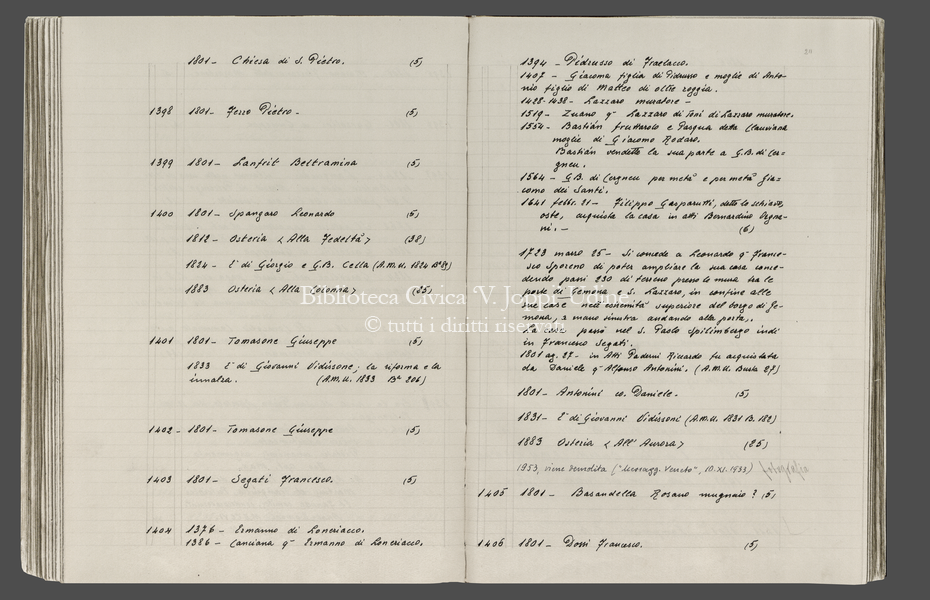 1801 - Chiesa di S. Pietro. (5)
1398 1801 - Ferro Pietro - (5)
1399 1801 - Lanfrit Beltramina (5)
1400 1801 - Spangaro Leonardo (5)
1812 - Osteria < Alla Fedeltà > (38)
1824 - È di Giorgio e G.B. Cella (A.M.U. 1824 Bª 89)
1883 Osteria < Alla Colonna > (25)
1401 1801 - Tomasone Giuseppe (5)
1833 È di Giovanni Vidissone; la riforma e la
innalza. (A.M.U. 1833 Bª 206)
1402 - 1801 - Tomasone Giuseppe (5)
1403 1801 - Segati Francesco. (5)
1404 1376 - Ermanno di Loneriacco.
1386 - Canciana qᵐ Ermanno di Loneriacco.
1394 - Pidrusso di Fraelacco.
1407 - Giacoma figlia di Pidrusso e moglie di Anto-
nio figlio di Matteo di oltre roggia.
1428-1438 - Lazzaro muratore -
1519 - Zuano qᵐ Lazzaro di Toni di Lazzaro muratore.
1554 - Bastian fruttarolo e Pasqua detta Clauiana
moglie di Giacomo Rodaro.
Bastian vendette la sua parte a G.B. di Cer=
gneu.
1564 - G.B. di Cergneu per metà e per metà Gia=
como dei Santi.
1641 febbr. 21 - Filippo Gasparutti, detto lo schiavo,
oste, acquista la casa in atti Bernardino
ni. - (6)
1723 marzo 25 - Si concede a Leonardo qᵐ France=
sco Sporeno di poter ampliare la sua casa conce-
dendo passi 230 di terreno presso le mura tra le
porte di Gemona e S. Lazzaro, in confine alle
sue case nell'estremità superiore del borgo di Ge-
mona, a mano sinistra andando alla porta,.
La casa passò nel S. Paolo Spilimbergo indi
in Francesco Segati.
1801 ag. 27 - in Atti Paderni Riccardo fu acquistata
da Daniele qᵐ Alfonso Antonini. (A.M.U. Busta 27)
1801 - Antonini co. Daniele - (5)
1831 - È di Giovanni Vidissoni (A.M.U. 1831 B. 182)
1883 Osteria < All'Aurora > (25)
1953, viene demolita ("Messagg. Veneto", 10.XI.1953) fotografia
1405 1801 - Basandella Rosano mugnaio? (5)
1406 1801 - Dossi Francesco. (5)
Biblioteca Civica 'V. Joppi' Udine
© tutti i diritti riservati